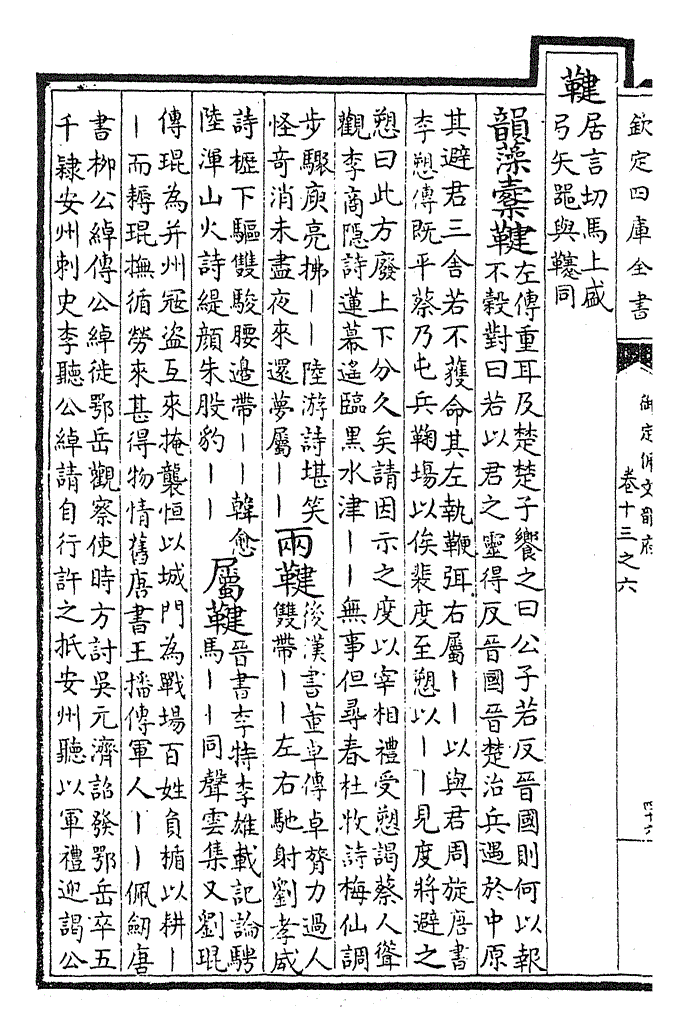 欽定四庫全書
御定佩文韻府
卷十三之六
四十六
鞬
居言切馬上盛
弓矢噐與 同
韻藻櫜鞬
左傳重耳及楚楚子饗之曰公子若反晉國則何以報
不穀對曰若以君之靈得反晉國晉楚治兵遇於中原
其避君三舍若不獲命其左執鞭弭右屬||以與君周旋唐書
李愬傳既平蔡乃屯兵鞠場以俟裴度至愬以||見度將避之
愬曰此方廢上下分久矣請因示之度以宰相禮受愬謁蔡人聳
觀李商隱詩蓮幕遙臨黑水津||無事但尋春杜牧詩梅仙調
步驟庾亮拂||陸游詩堪笑
怪奇消未盡夜來還夢屬||
兩鞬
後漢書董卓傳卓膂力過人
雙帶||左右馳射劉孝威
詩櫪下驅雙駿腰邊帶||韓愈
陸渾山火詩緹顏朱股豹||
屬鞬
晉書李特李雄載記論騁
馬||同聲雲集又劉琨
傳琨為并州冦盜互來掩襲恒以城門為戰場百姓負楯以耕|
|而耨琨撫循勞來甚得物情舊唐書王播傳軍人||佩劒唐
書栁公綽傳公綽徙鄂岳觀察使時方討吳元濟詔發鄂岳卒五
千隷安州刺史李聽公綽請自行許之扺安州聽以軍禮迎謁公